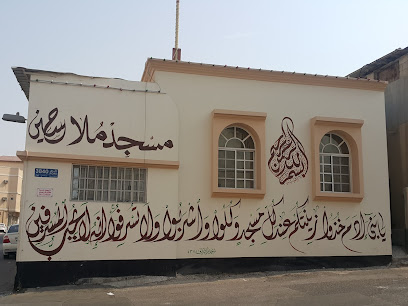 مسجد ملا حسين
بسم الله الرحمن الرحيم
3840
يا بني آدم خذوا زينتكم عند كل مسجد وكلوا واشربوا ولا تسرفوا إنه لا يحب المسرفين